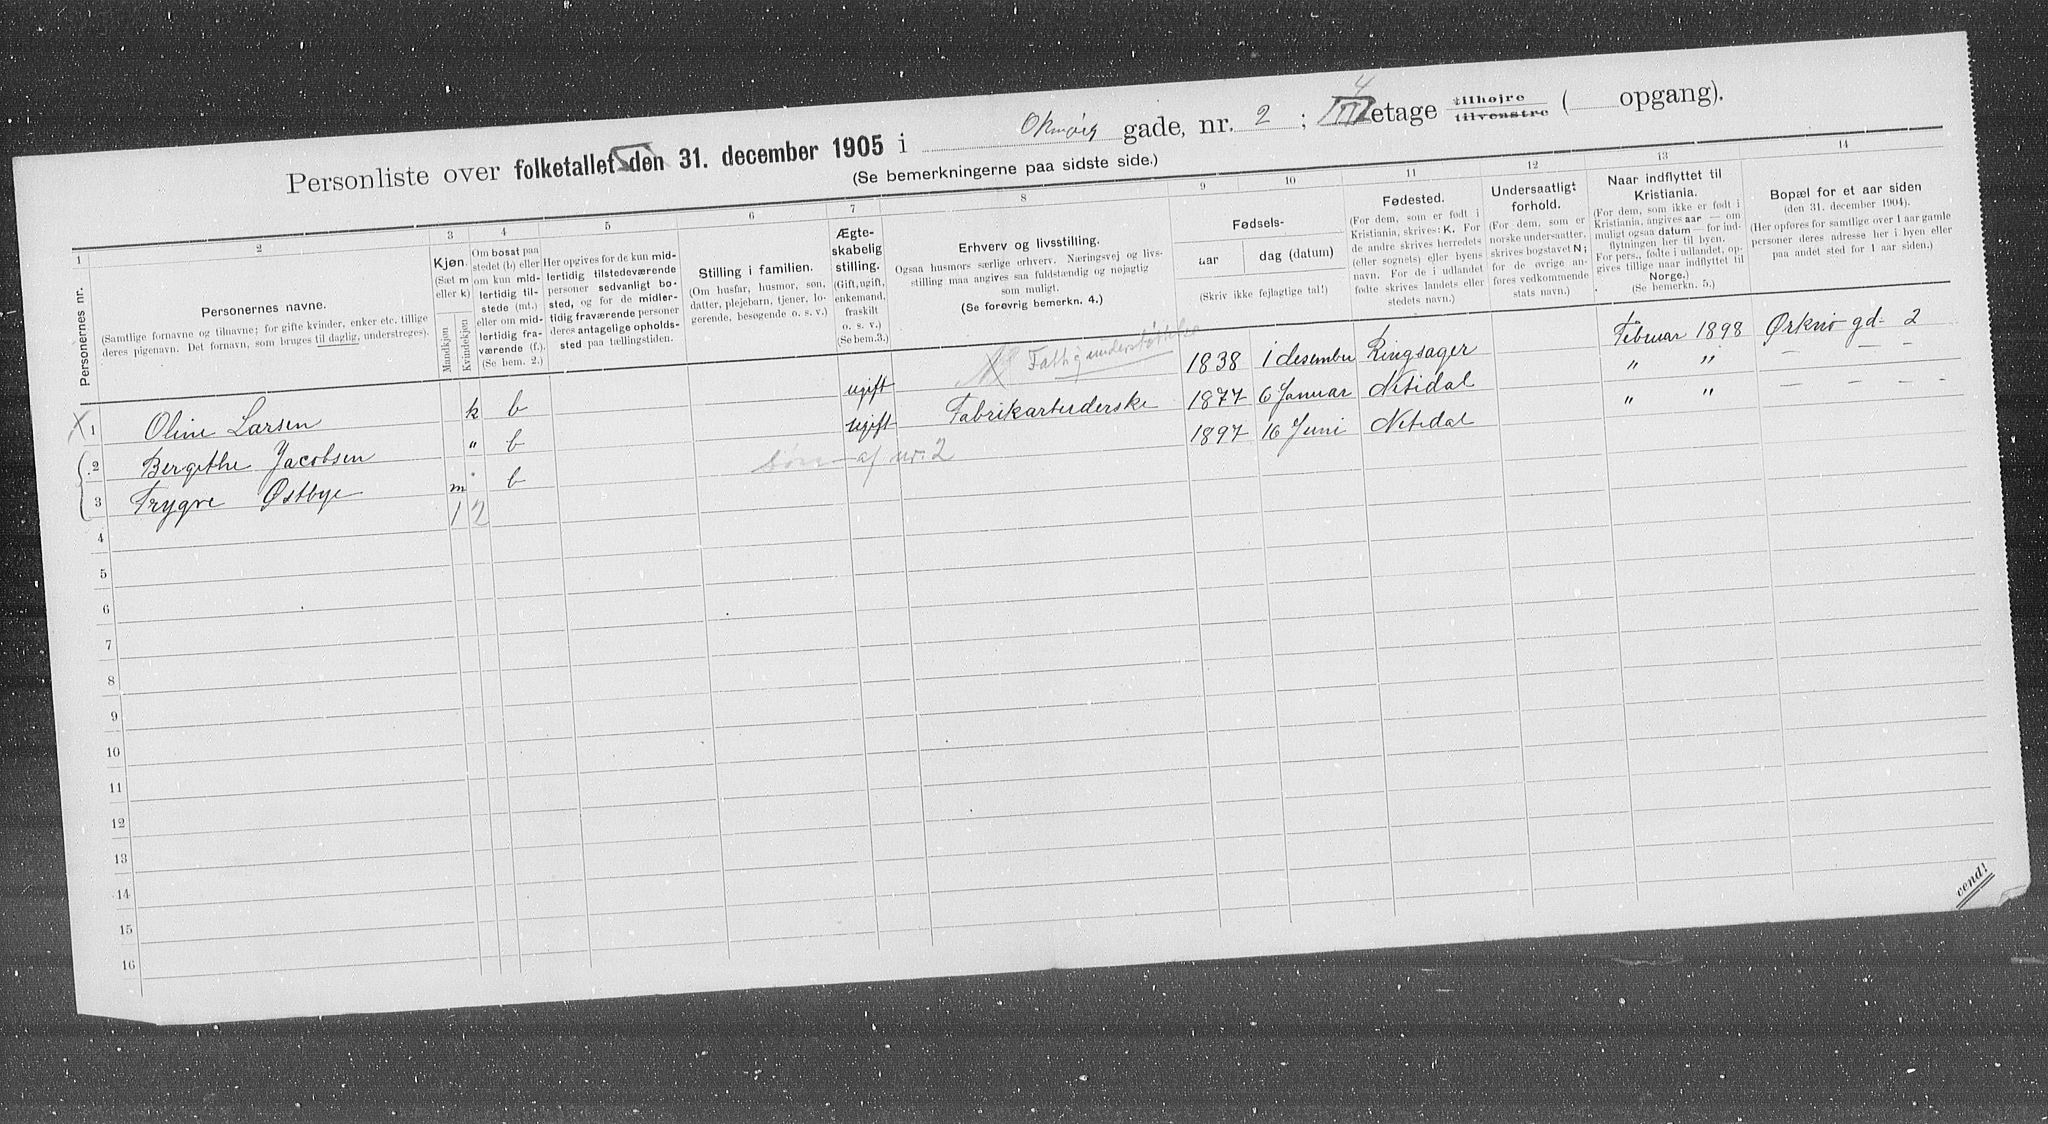 Personliste over folketallet den 31. december 1905 i gade, nr. 2 ; III 4 etage tilhøjre tilvenstre ( opgang).
(Se bemerkningerne paa sidste side.)
1 2 3 4 5 6 7 8 9 10 11 12 13 14
Personernes nr.
Personernes navne.
(Samtlige fornavne og tilnavne; for gifte kvinder, enker etc. tillige
deres pigenavn. Det fornavn, som bruges til daglig, understreges).
Kjøn.
(Sæt m
eller k)
Mandkjøn
Kvindekjøn
Om bosat paa
stedet (b) eller
om kun mid-
lertidig til-
stede (mt.)
eller om mid-
lertidig fra-
værende (f.).
(Se bem. 2.)
Her opgives for de kun mid-
lertidig tilstedeværende
personer sedvanligt bo-
sted, og for de midler-
tidig fraværende personer
deres antagelige opholds-
sted paa tællingstiden.
Stilling i familien.
(Om husfar, husmor, søn,
datter, plejebarn, tjener, lo-
gerende, besøgende o. s. v.)
Ægte-
skabelig
stilling.
(Gift, ugift,
enkemand,
fraskilt
o. s. v.)
(Se bem.3.)
Erhverv og livsstilling.
Ogsaa husmors særlige erhverv. Næringsvej og livs-
stilling maa angives saa fuldstændig og nøjagtig
som muligt.
(Se forøvrig bemerkn. 4.)
Fødsels-
aar dag (datum)
(Skriv ikke fejlagtige tal!)
Fødested.
(For dem, som er født i
Kristiania, skrives: K. For
de andre skrives herredets
(eller sognets) eller byens
navn. For de i udlandet
fødte skrives landets eller
stedets navn.)
Undersaatligt
forhold.
(For dem, som er
norske undersaatter,
skrives bogstavet N;
for de øvrige an-
føres vedkommende
stats navn.)
Naar indflyttet til
Kristiania.
(For dem, som ikke er født i
Kristiania, angives aar — om
muligt ogsaa datum — for ind-
flytningen her til byen.
For pers., født i udlandet, op-
gives tillige naar indflyttet til
Norge.)
(Se bemerkn. 5.)
Bopæl for et aar siden
(den 31. december 1904).
(Her opføres for samtlige over 1 aar gamle
personer deres adresse her i byen eller
paa andet sted for 1 aar siden.)
X 1 Oline Larsen k b ugift 1838 1 desember Ringsager Februar 1898 Ørknø gd. 2
2 Bergithe Jacobsen " b ugift Fabrikarbeiderske 1877 6 Januar Nitedal " " — — —
3 Trygve Østbye m b søn af nr. 2 1897 16 Juni Nitedal " " — — — -
1 2
4
5
6
7
8
9
10
11
12
13
14
15
16
vend!